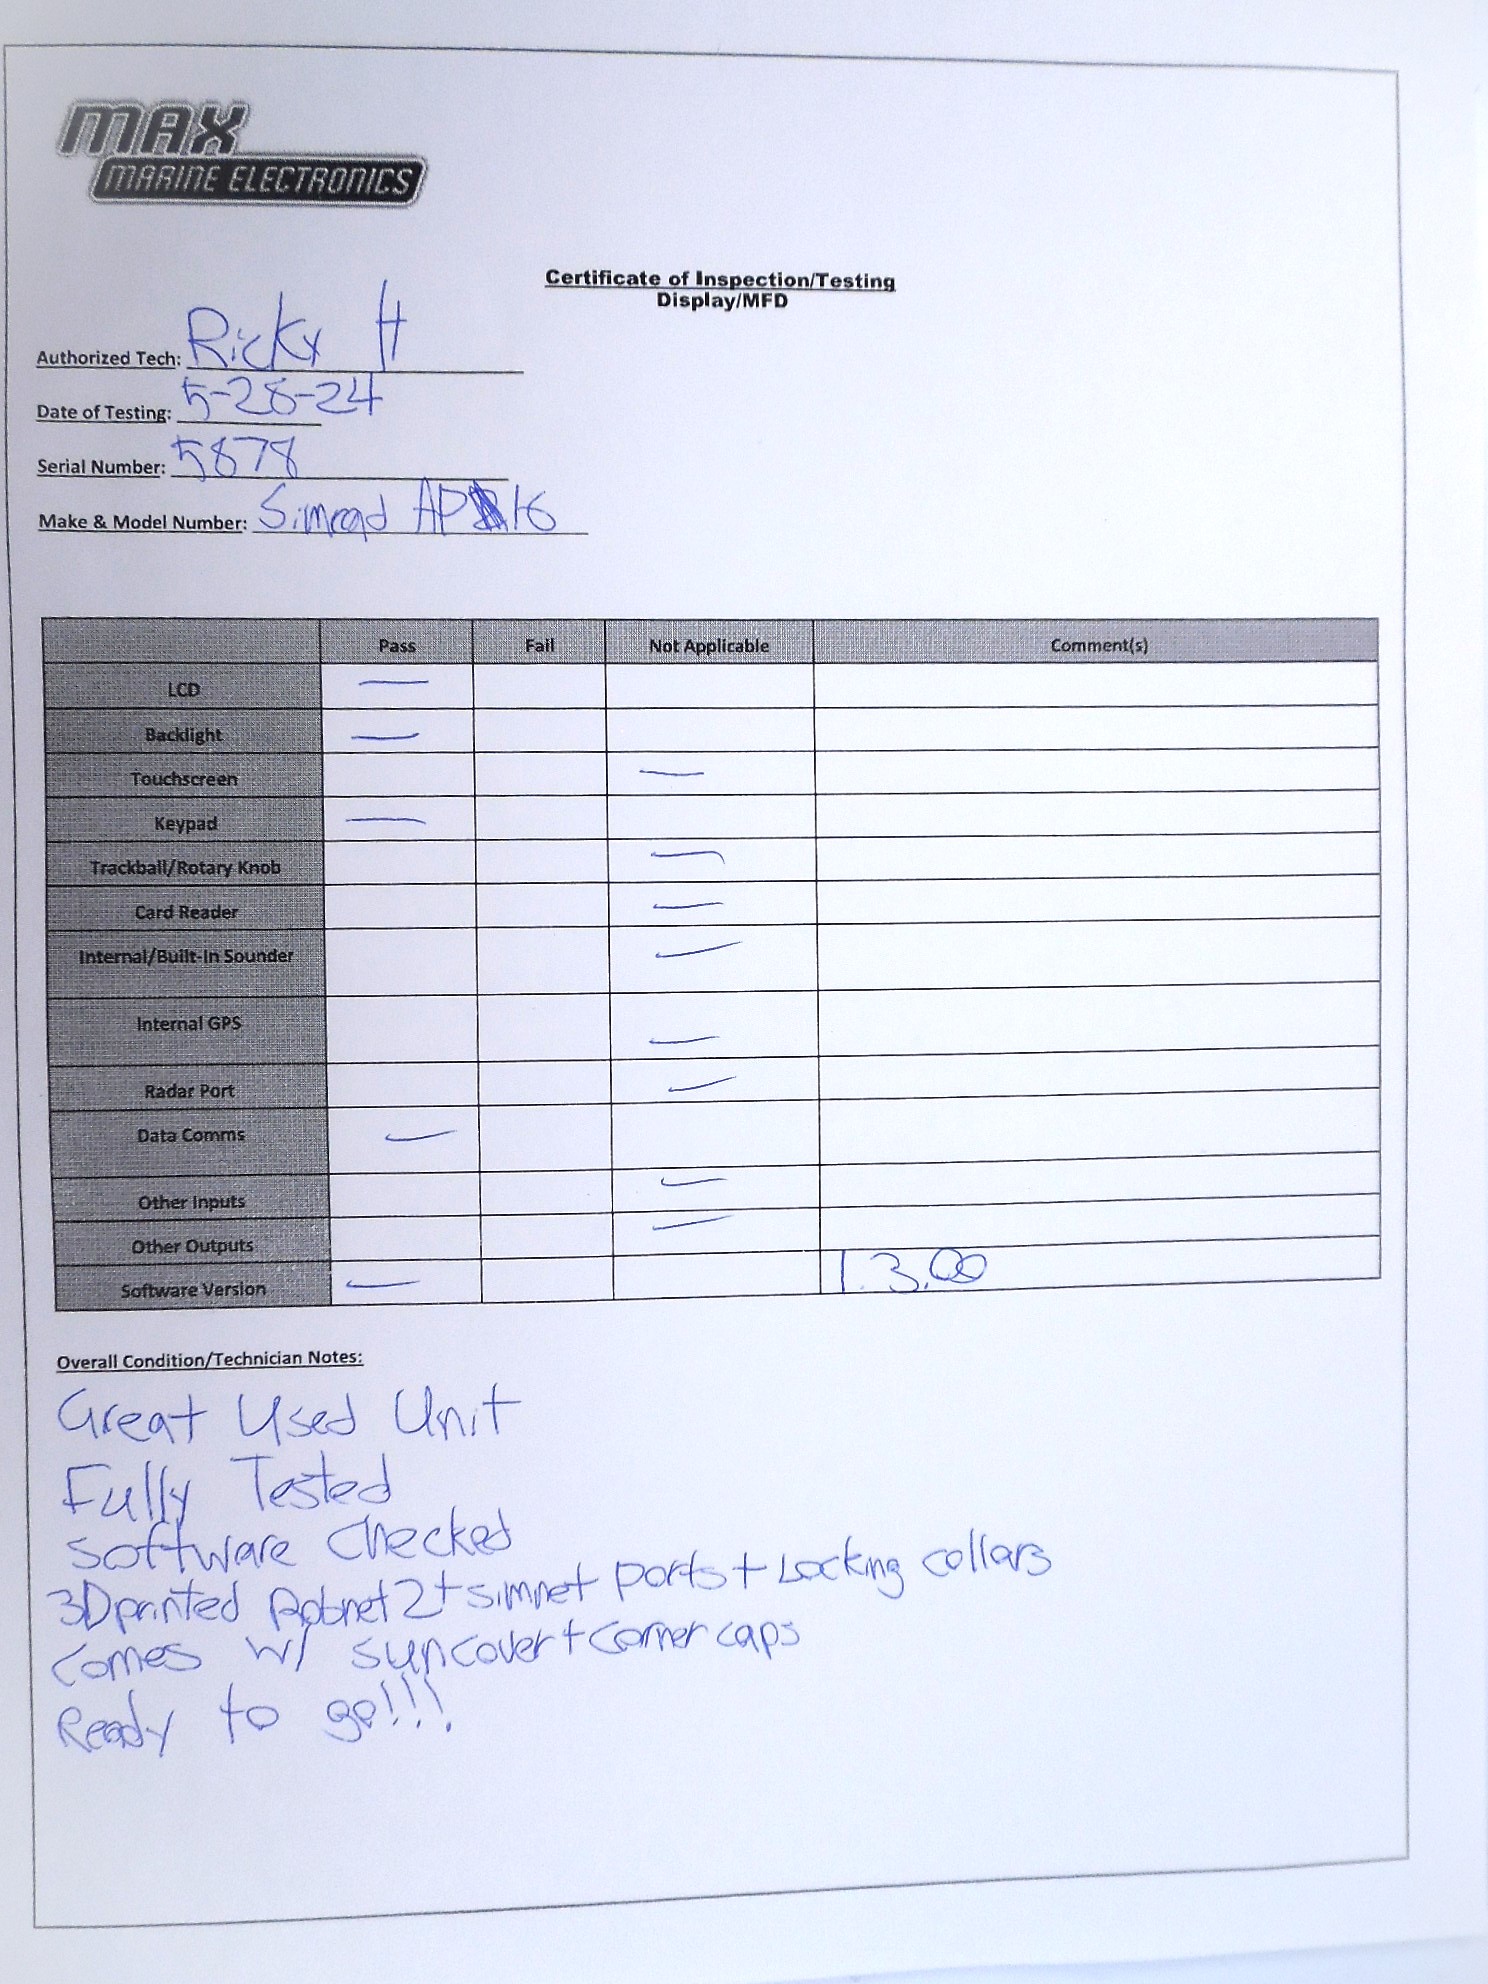 MAX
MARINE ELECTRONICS
Certificate of Inspection/Testing
Display/MFD
Authorized Tech: Ricky H
Date of Testing: 5-28-24
Serial Number: 5878
Make & Model Number: Simrad AP 16
Pass Fail Not Applicable Comment(s)
LCD —
Backlight —
Touchscreen —
Keypad —
Trackball/Rotary Knob —
Card Reader —
Internal/Built-In Sounder —
Internal GPS —
Radar Port —
Data Comms —
Other Inputs —
Other Outputs —
Software Version — 1.3.00
Overall Condition/Technician Notes:
Great Used Unit
Fully Tested
Software Checked
3D printed Robnet2 + simnet ports + Locking collars
Comes w/ suncover + corner caps
Ready to go!!!